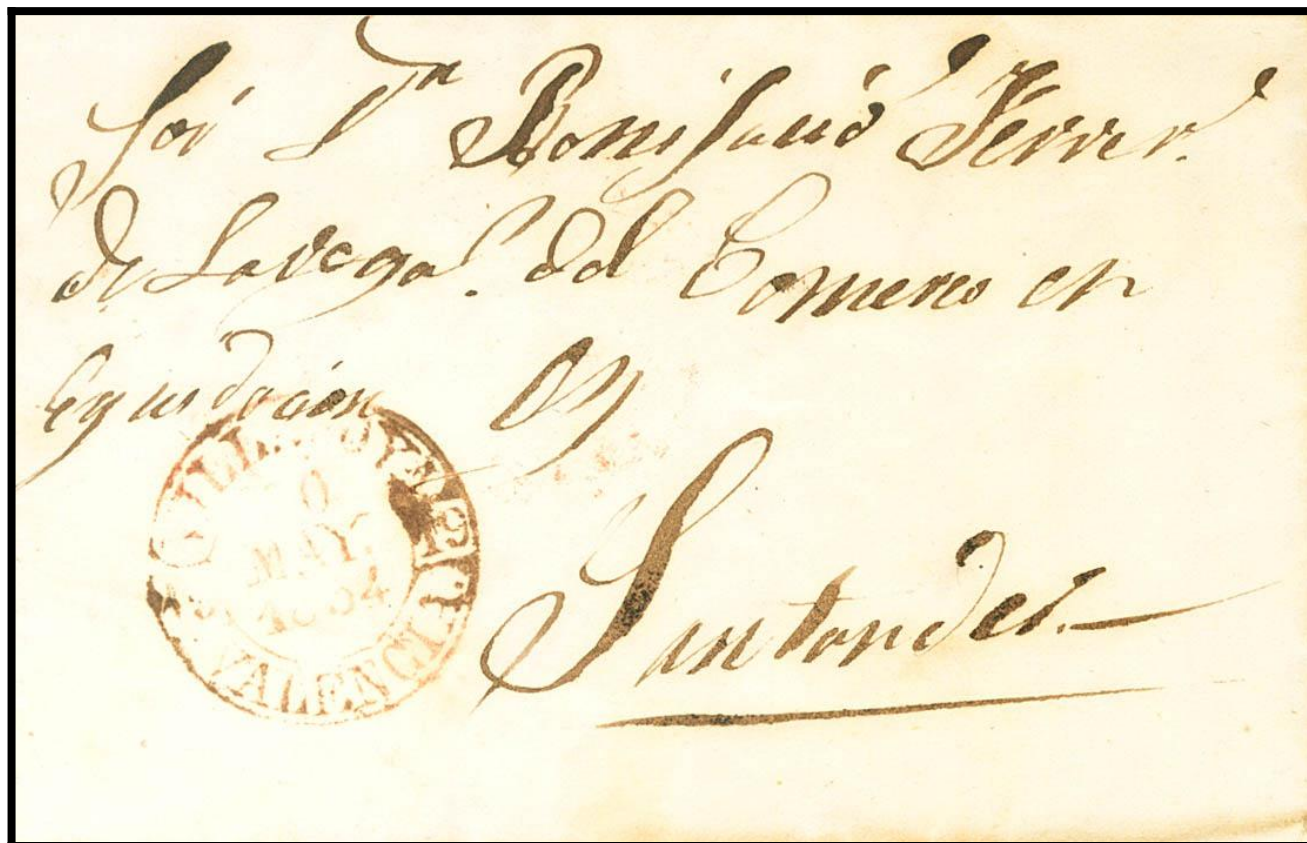 Sor Dn Bonifacio Ferrer.
de la vega. del Comercio en
liquidacion
Santander.
MAY.
1854
19
VALENCIA.